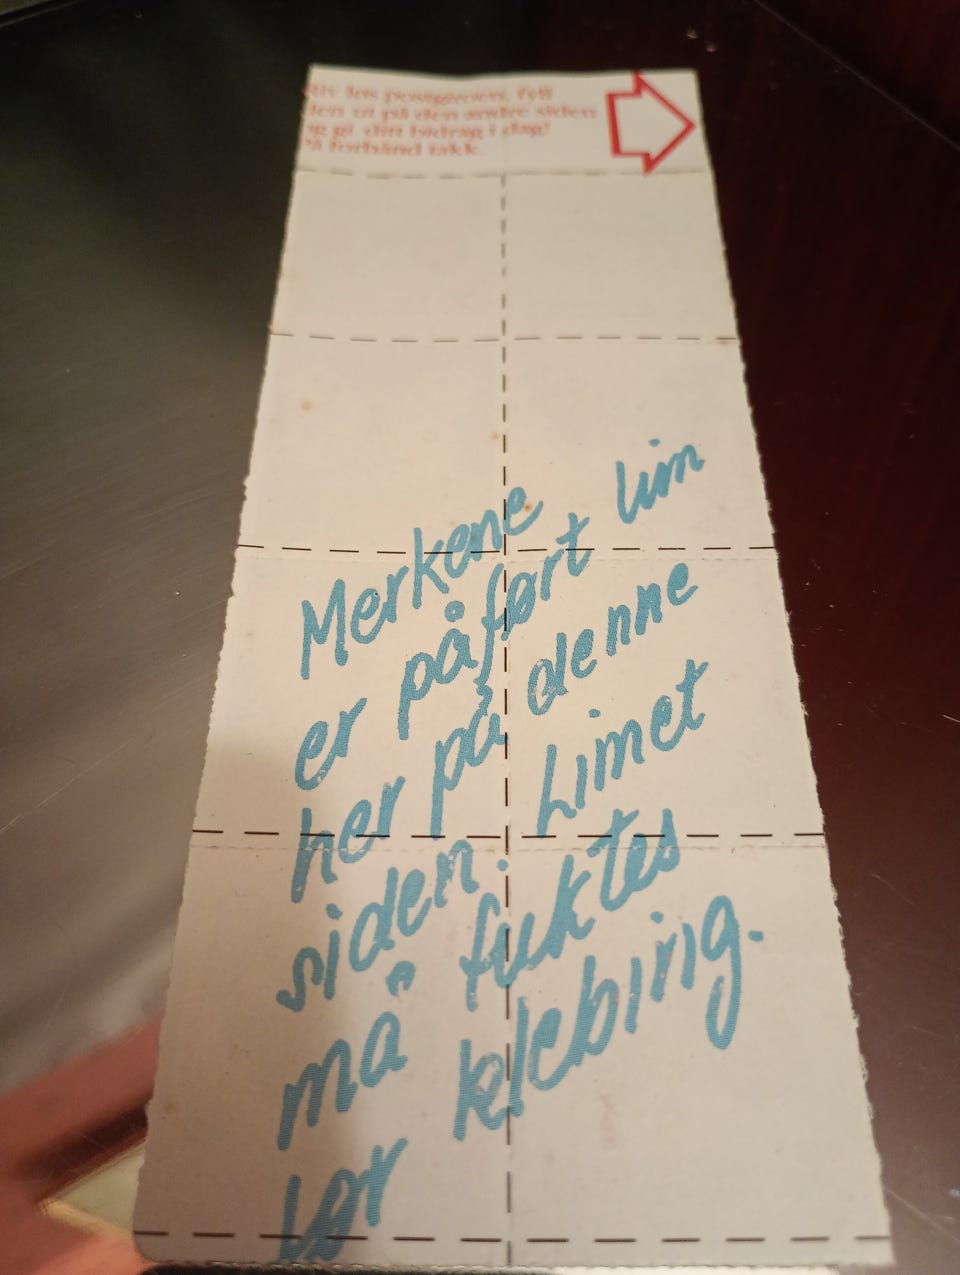 Riv løs postgiroen, fyll
den ut på den andre siden
og gi din bidrag i dag!
På forhånd takk.
Merkene
er påført lim
her på denne
siden. Limet
må fuktes
før klebing.